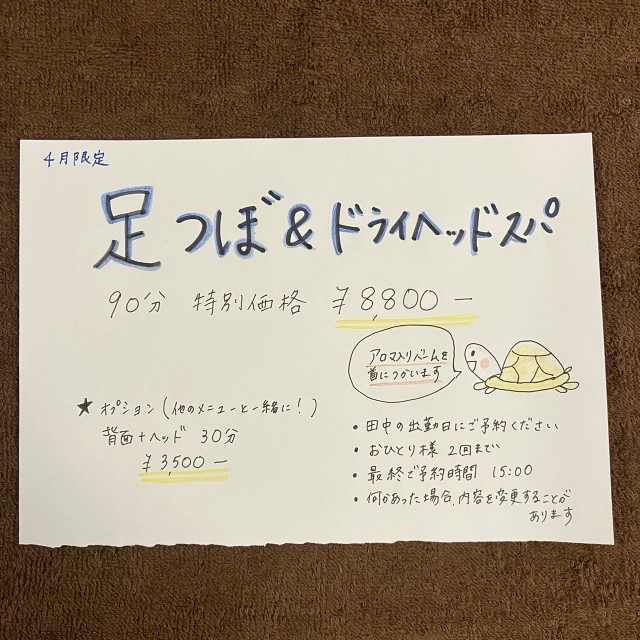 4月限定
足つぼ&ドライヘッドスパ
90分 特別価格 ¥8,800ー
アロマ入りバームを
首につかいます
★ オプション(他のメニューと一緒に!)
背面+ヘッド 30分
¥3,500ー
・田中の出勤日にご予約ください
・おひとり様 2回まで
・最終ご予約時間 15:00
・何かあった場合、内容を変更することが
あります